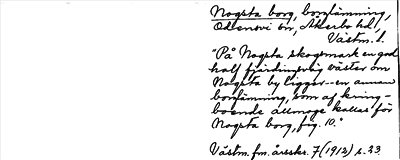 Nogsta borg, borglämning,
Odensvi sn, Åkerbo hd,
Västm. l.
"På Nogsta skogsmark en god
half fjärdingsväg väster om
Nogsta by ligger -- en annan
borglämning, som af kring-
boende allmoge kallas för
Nogsta borg, fig. 10."
Västm. fm. årsskr. 7 (1912) s. 23